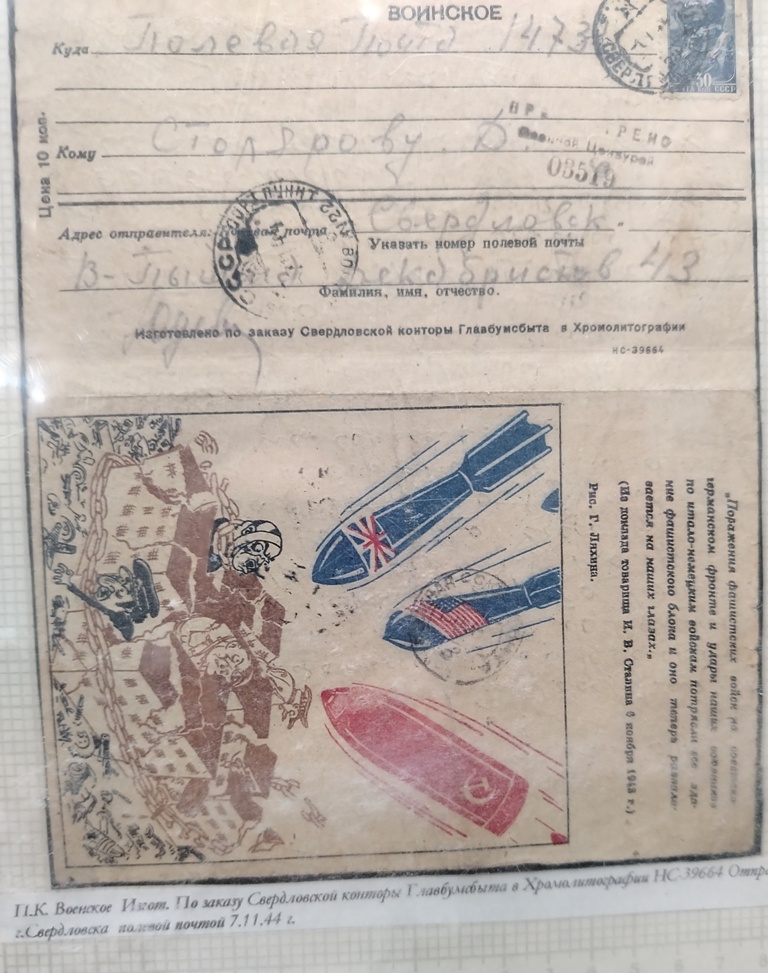 ВОИНСКОЕ
Куда Полевая Почта 1473
Цена 10 коп.
Кому Столярову. Д.
Военной Цензурой
03519
30
СВЕРДЛ
Адрес отправителя: почта Свердловск.
Указать номер полевой почты
В- Декабристов 43
Фамилия, имя, отчество.
Изготовлено по заказу Свердловской конторы Главбумсбыта в Хромолитографии
НС-39664
СССР ПУНКТ 2222
„Поражения фашистских войск на советско-
германском фронте и удары наших союзников
по итало-немецким войскам потрясли все зда-
ние фашистского блока и оно теперь развали-
вается на наших глазах."
(Из доклада товарища И. В. Сталина 6 ноября 1943 г.)
Рис. Г. Ляхина.
П.К. Военское Изгот. По заказу Свердловской конторы Главбумсбыта в Хромолитографии НС-39664 Отпра
г.Свердловска полевой почтой 7.11.44 г.